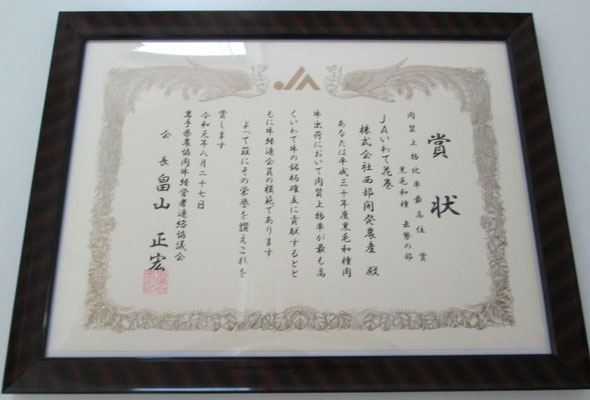 賞状
肉質上物比率最高位賞
黒毛和種 去勢の部
JAいわて花巻
株式会社西部開発農産 殿
あなたは平成三十年度黒毛和種肉
牛出荷において肉質上物率が最も高
くいわて牛の銘柄確立に貢献するとと
もに牛経連会員の模範であります
よって茲にその栄誉を讃えこれを
賞します
令和元年八月二十七日
岩手県農協肉牛経営者連絡協議会
会長 畠山 正宏